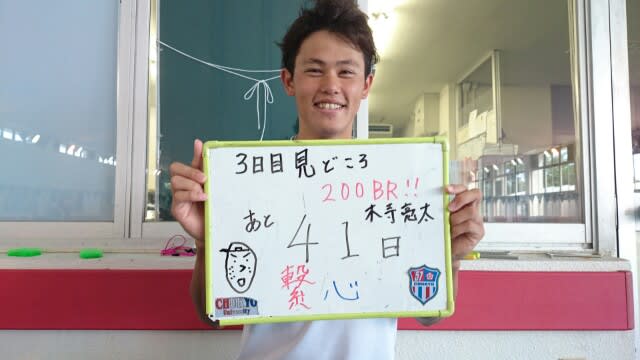 3日目見どころ
200BR!!
木寺亮太
あと
41日
繋心
CHUKYO
University
CHUKYO